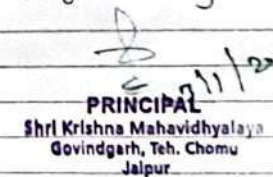 PRINCIPAL
Shri Krishna Mahavidhyalaya
Govindgarh, Teh. Chomu
Jaipur